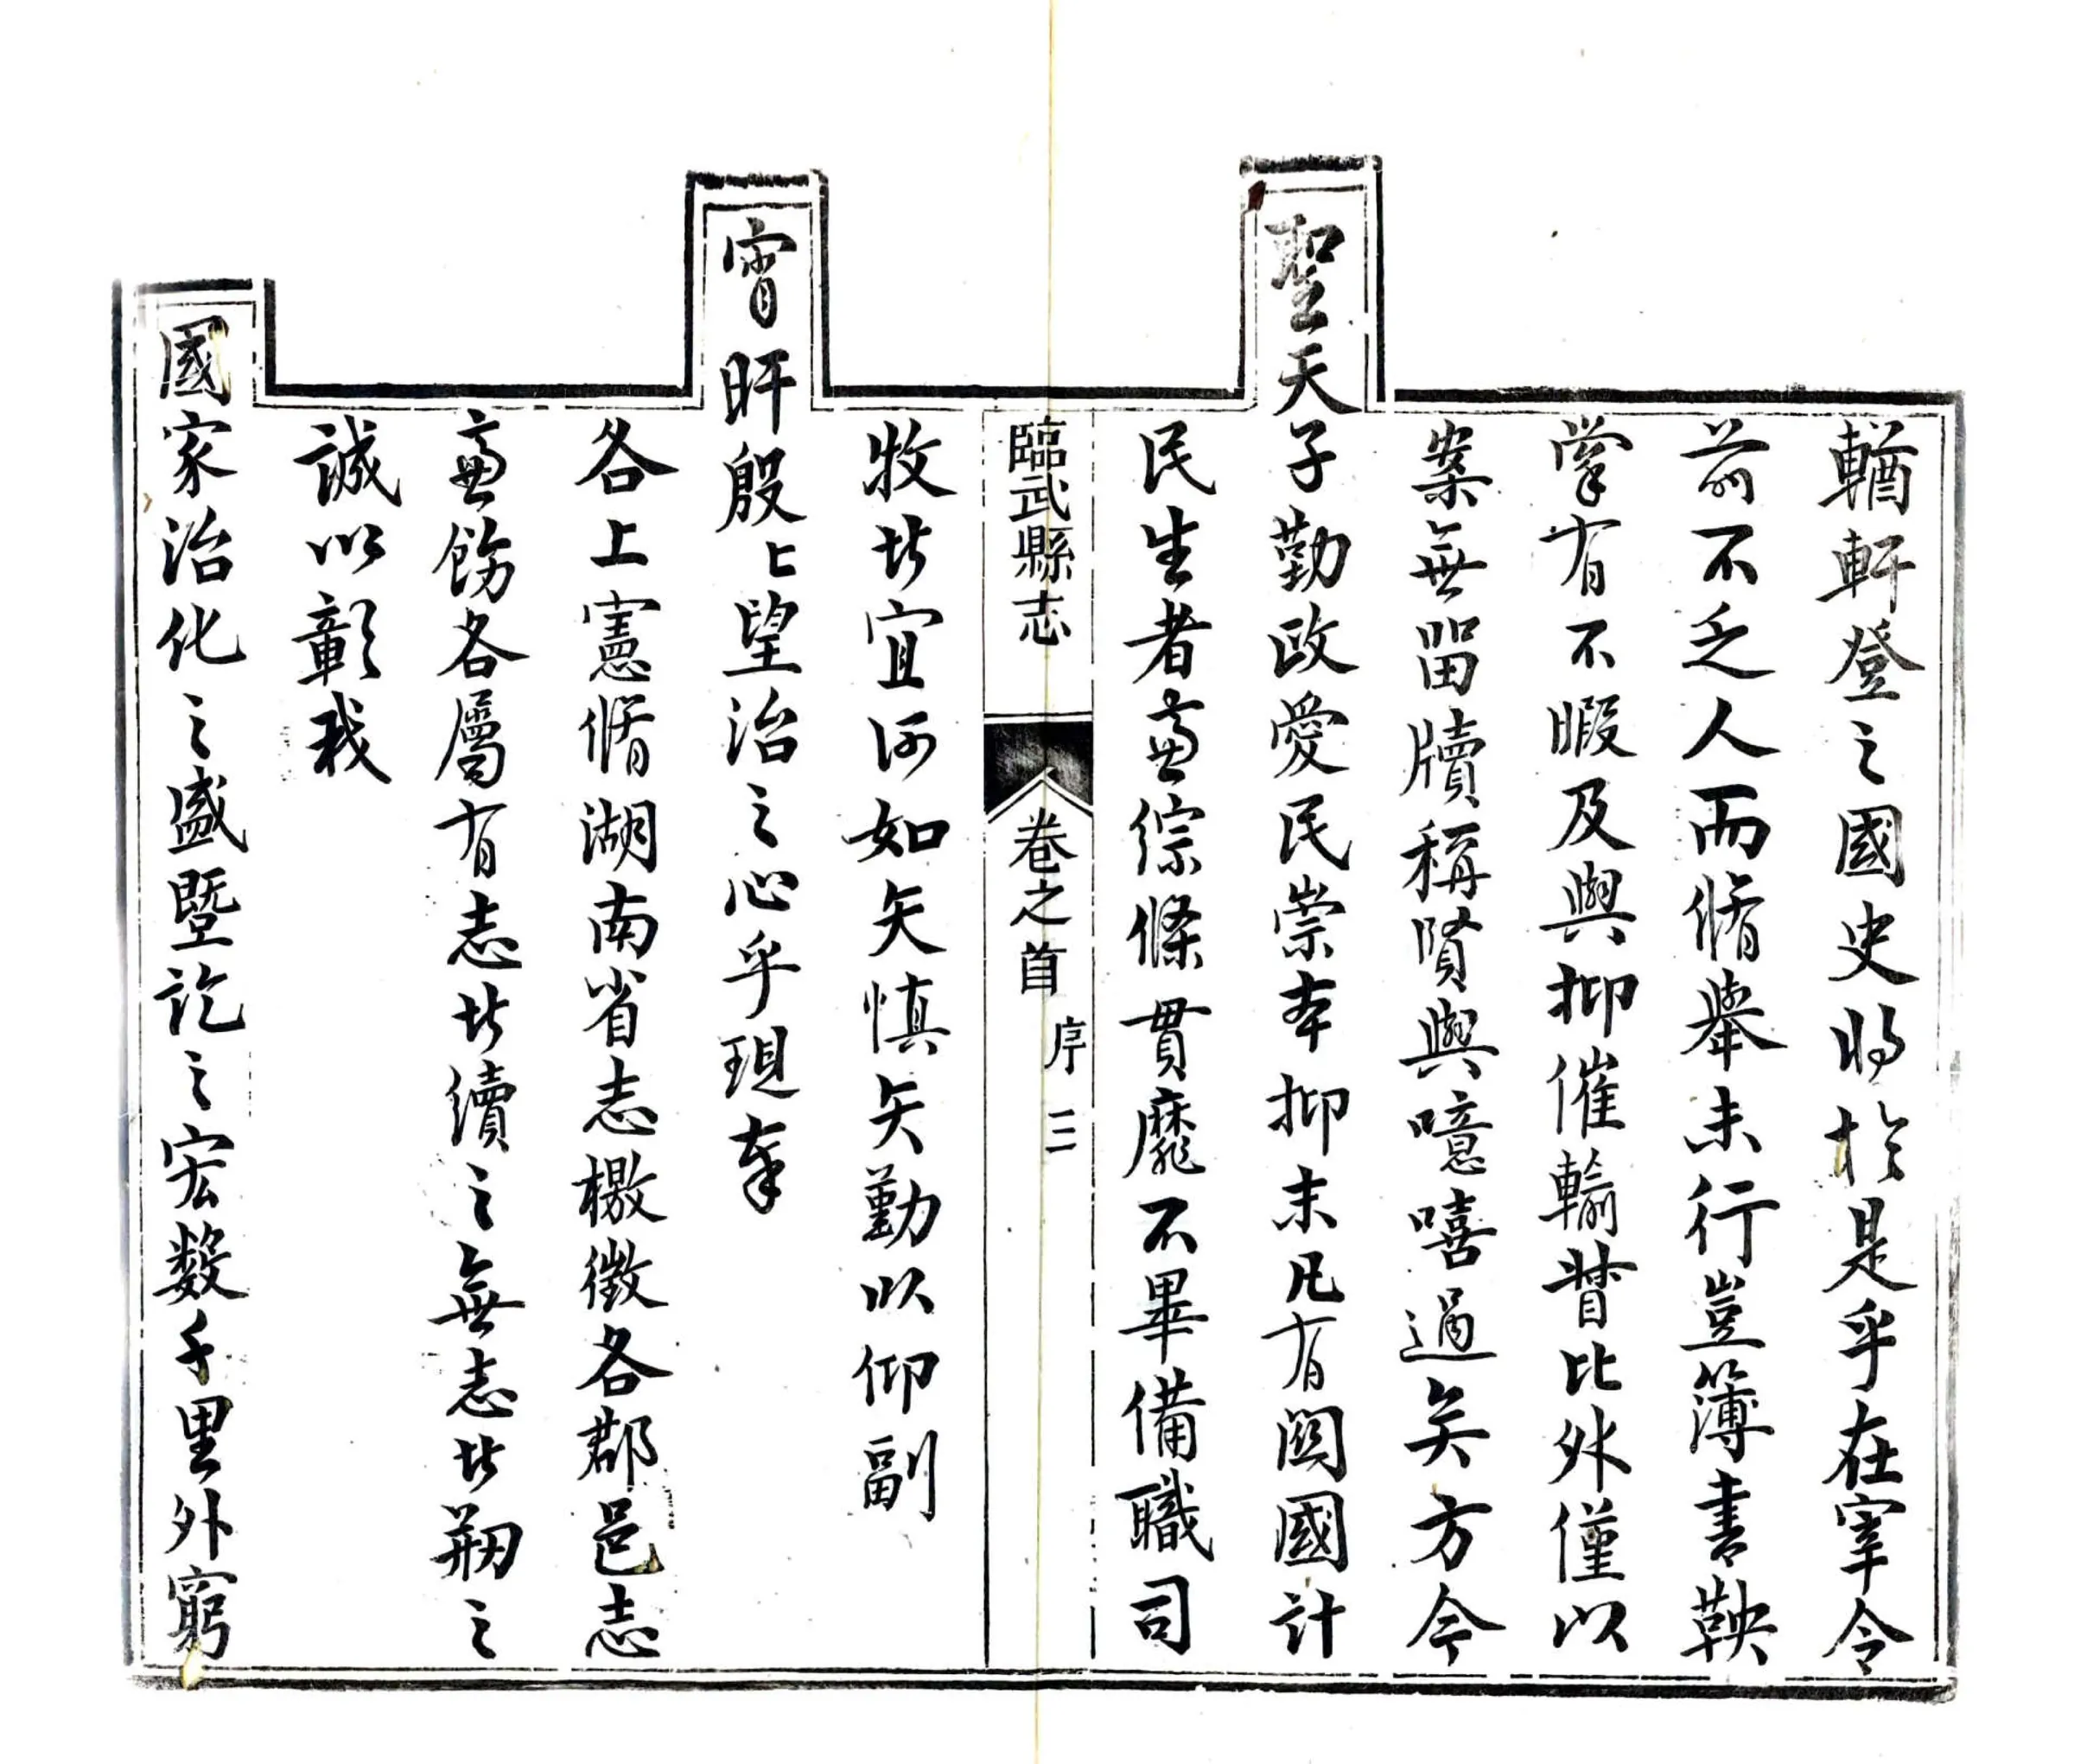 輶軒登之國史將於是乎在宰令
前不乏人而脩舉未行豈簿書鞅
掌有不暇及與抑催輸督比外僅以
案無留牘稱賢與噫嘻過矣方今
聖天子勤政愛民崇本抑末凡有關國計
民生者畝綜條貫靡不畢備職司
臨武縣志
卷之首
序
三
牧者宜何如矢慎矢勤以仰副
宵旰殷〻望治之心乎現奉
各上憲脩湖南省志檄徵各郡邑志
飭各屬有志者續之無志者剏之
誠以彰我
國家治化之盛暨訖之宏數千里外窮